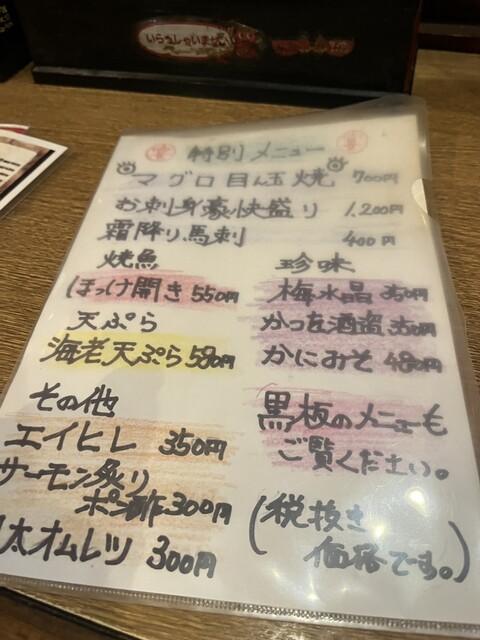 いらっしゃいませ
特別メニュー
マグロ目ん玉焼 700円
お刺身豪快盛り 1.200円
霜降り馬刺 400円
焼魚
ほっけ開き 550円
天ぷら
海老天ぷら 580円
その他
エイヒレ 350円
サーモン炙り
ポン酢 300円
太オムレツ 300円
珍味
梅水晶 350円
かつを酒盗 350円
かにみそ 480円
黒板のメニューも
ご覧ください。
(税抜き
価格です。)